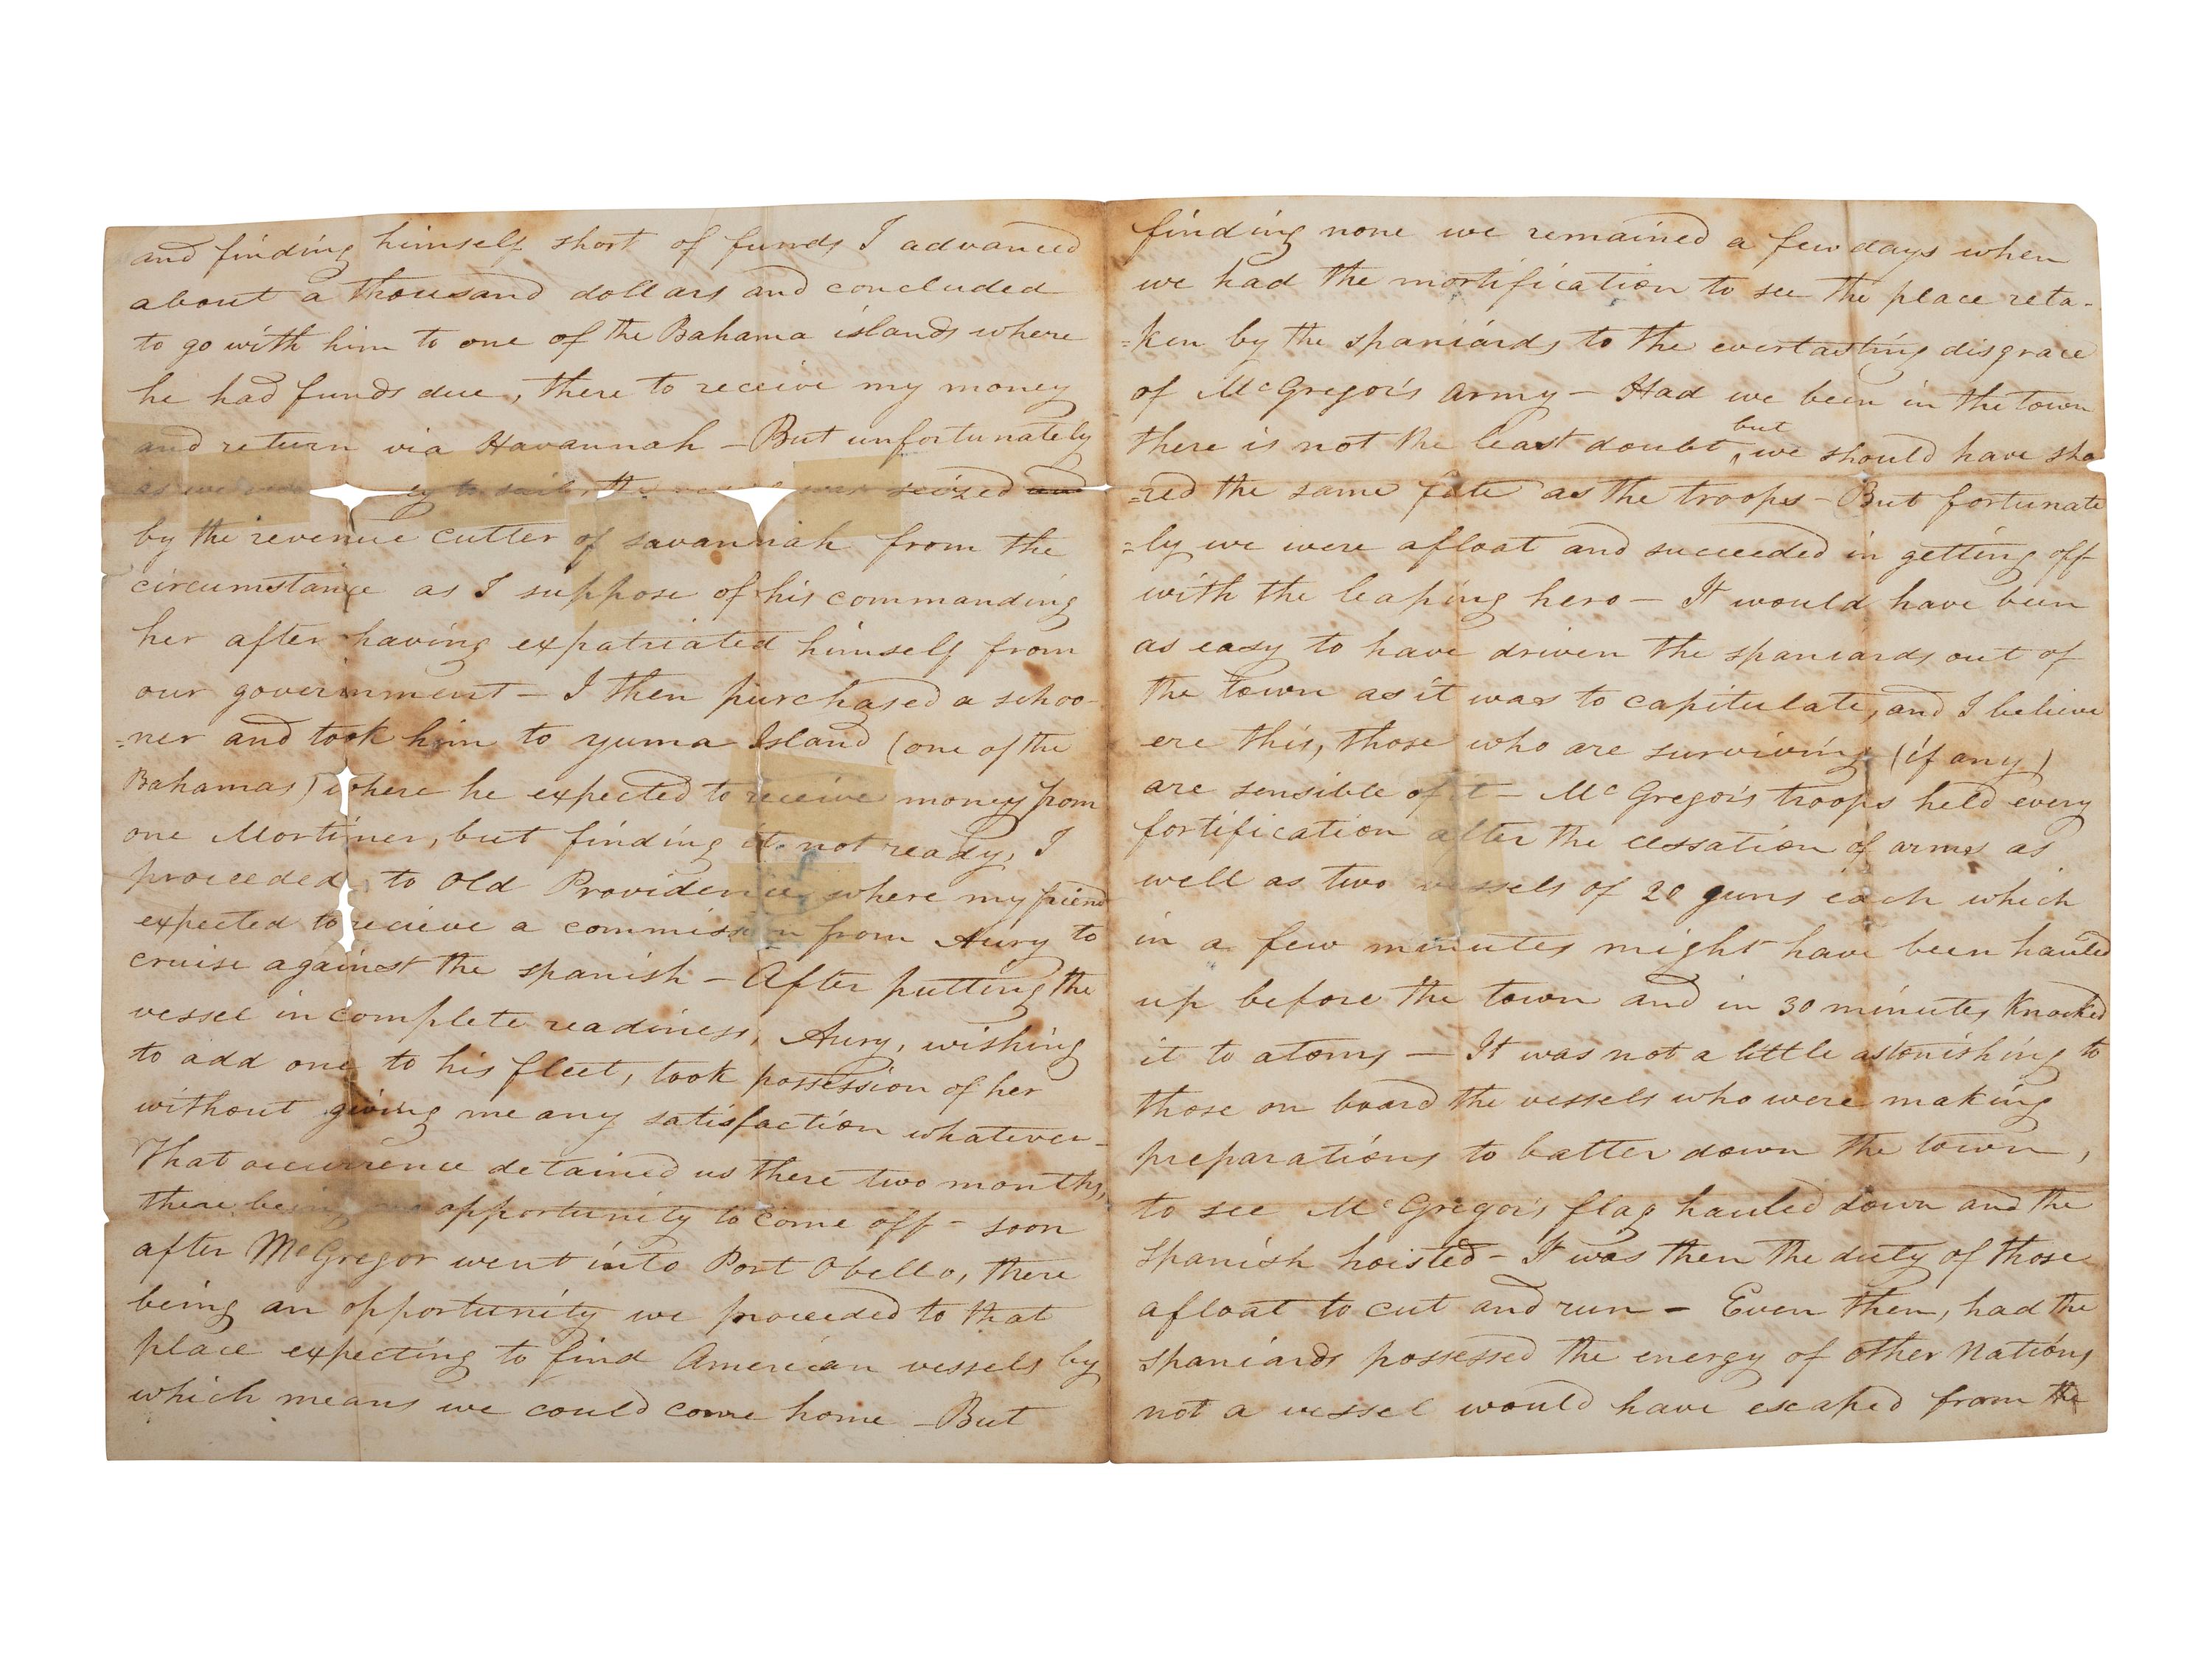 and finding himself short of funds I advanced
about a thousand dollars and concluded
to go with him to one of the Bahama islands where
he had funds due, there to receive my money
and return via Havannah – But unfortunately
as we to sail, the was seized and
by the revenue cutter of Savannah from the
circumstance as I suppose of his commanding
her after having expatriated himself from
our government – I then purchased a schoo-
=ner and took him to yuma Island (one of the
Bahamas) where he expected to receive money from
one Mortimer, but finding it not ready, I
proceeded to Old Providence where my friend
expected to recieve a commission from Aury to
cruise against the spanish – After putting the
vessel in complete readiness, Aury, wishing
to add one to his fleet, took possession of her
without giving me any satisfaction whatever –
That occurrence detained us there two months,
there being no opportunity to come off – soon
after McGregor went into Port Obello, there
being an opportunity we proceeded to that
place expecting to find American vessels by
which means we could come home – But
finding none we remained a few days when
we had the mortification to see the place reta-
=ken by the spaniards to the everlasting disgrace
of McGregor's army – Had we been in the town
there is not the least doubt, but we should have sha
=red the same fate as the troops – But fortunate
=ly we were afloat and succeeded in getting off
with the leaping hero – It would have been
as easy to have driven the spaniards out of
the town as it was to capitulate, and I believe
ere this, those who are surviving (if any)
are sensible of it – McGregor's troops held every
fortification after the cessation of arms as
well as two vessels of 20 guns each which
in a few minutes might have been hauled
up before the town and in 30 minutes knocked
it to atoms – It was not a little astonishing to
those on board the vessels who were making
preparations to batter down the town,
to see McGregor's flag hauled down and the
spanish hoisted – It was then the duty of those
afloat to cut and run – Even then, had the
spaniards possessed the energy of other Nations
not a vessel would have escaped from the